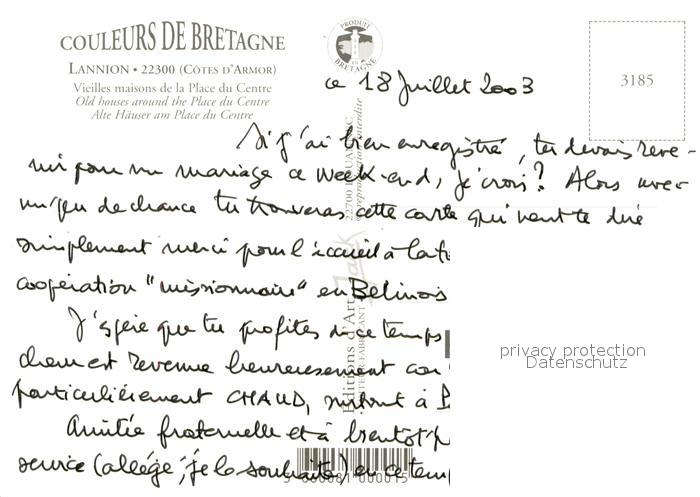 COULEURS DE BRETAGNE
LANNION • 22300 (CÔTES D'ARMOR)
Vieilles maisons de la Place du Centre
Old houses around the Place du Centre
Alte Häuser am Place du Centre
PRODUIT EN BRETAGNE
3185
ce 18 Juillet 2003
Si j'ai bien enregistré, tu devais reve-
nir pour un mariage ce week-end, je crois? Alors avec
un peu de chance tu trouveras cette carte qui veut te dire
simplement merci pour l'accueil à la
coopération "missionnaire" en Belinois
J'espère que tu profites de ce temps
est revenue heureusement car
particulièrement CHAUD, surtout à
Amitié fraternelle et à bientôt
service (allégé, je le souhaite) en ce tem
Editions d'Art Jack
reproduction interdite
privacy protection
Datenschutz